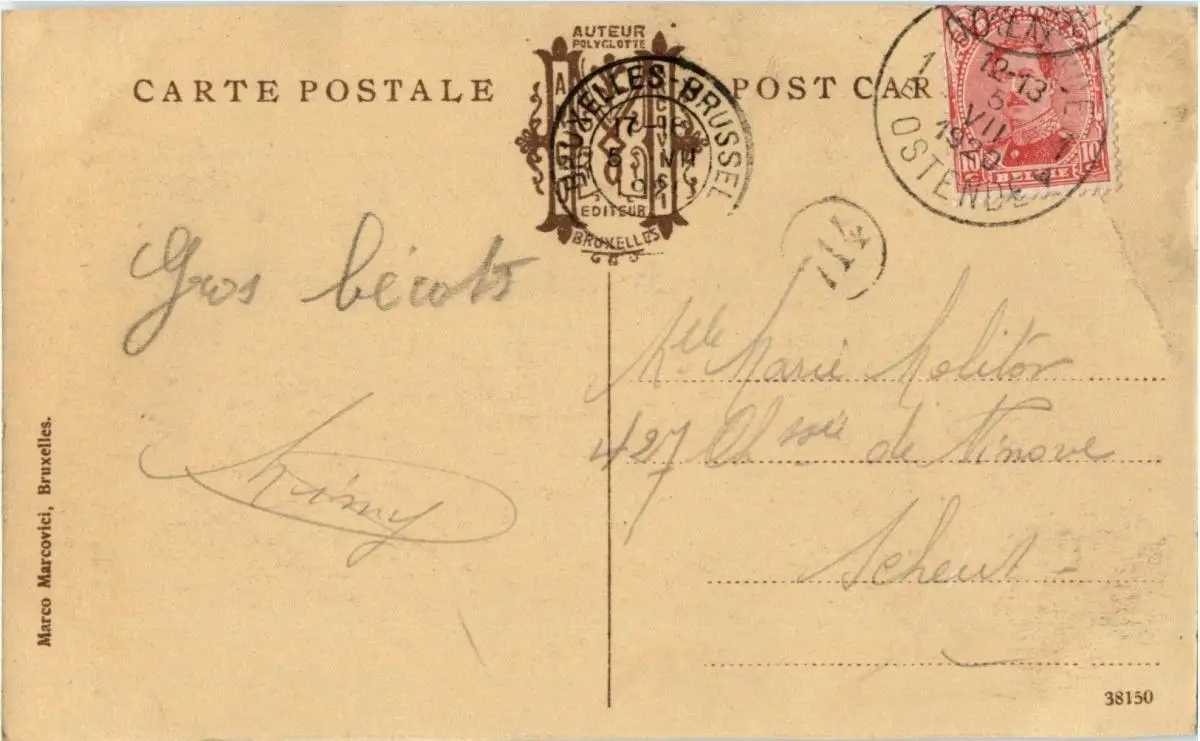 CARTE POSTALE
AUTEUR
POLYGLOTTE
EDITEUR
BRUXELLES
POST CAR
BRUXELLES-BRUSSEL
5 VII
OOSTENDE 1
12-13
5
VII
1920
OSTENDE 1
BELGIE
10 10
114
Gros bécots
Rémy
Mlle Marie Molitor
427 Chssée de Ninove
Scheut
Marco Marcovici, Bruxelles.
38150